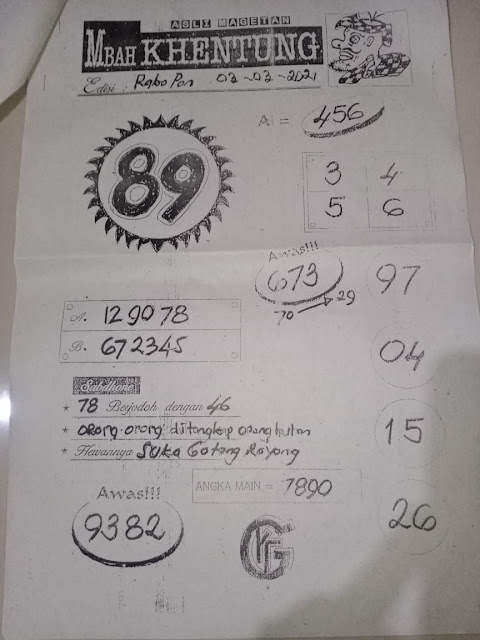 ASLI MAGETAN
MBAH KHENTUNG
Edisi : Rabo Pon 03-03-2021
89
Ai = 456
3 4
5 6
Awas!!!
673
70 → 29
97
A. 129078
B. 672345
04
Sabdhone
* 78 Berjodoh dengan 46
* orang-orang ditangkap orang hutan
* Hewannya Suka Gotong Royong
15
ANGKA MAIN = 7890
Awas!!!
9382
26